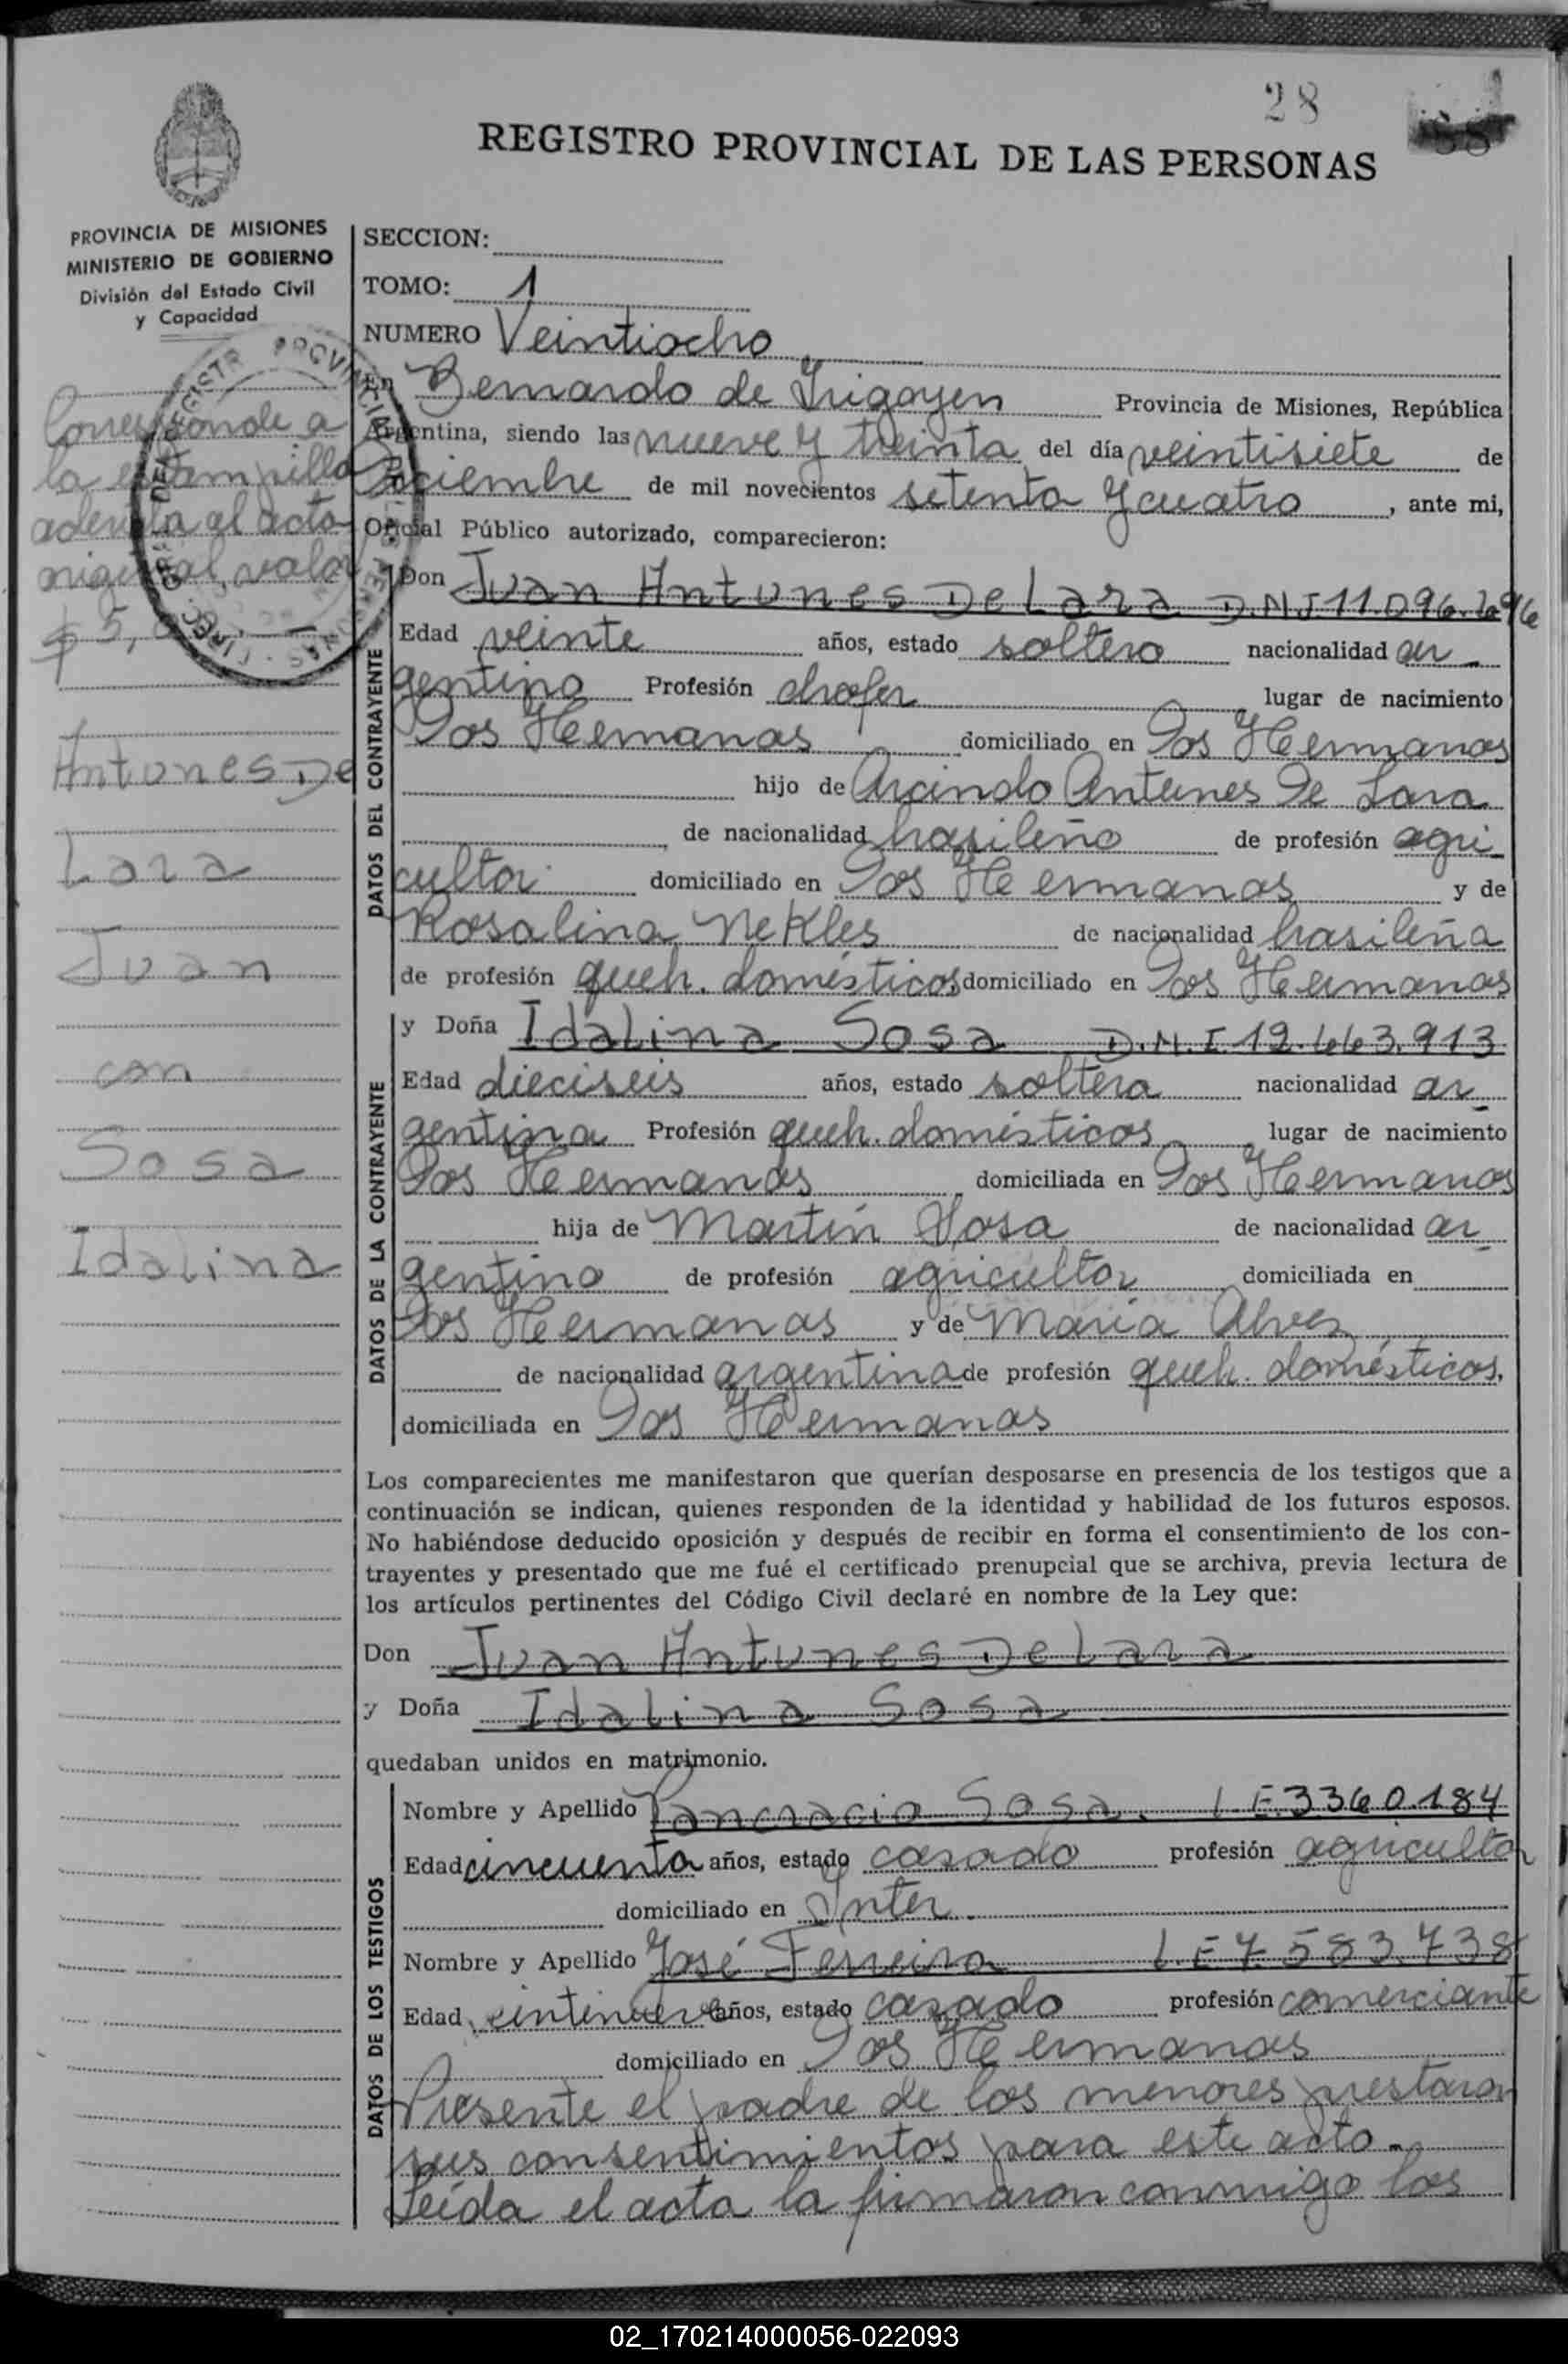 28
REGISTRO PROVINCIAL DE LAS PERSONAS
PROVINCIA DE MISIONES
MINISTERIO DE GOBIERNO
División del Estado Civil
y Capacidad
Corresponde a
la estampilla
aderida al acto
original, valor
$ 5,
Antones De
Lara
Juan
con
Sosa
Idalina
SECCION:
TOMO: 1
NUMERO Veintiocho
En Bernardo de Irigoyen Provincia de Misiones, República
Argentina, siendo las nueve y treinta del día veintisiete de
Diciembre de mil novecientos setenta y cuatro, ante mi,
Oficial Público autorizado, comparecieron:
DATOS DEL CONTRAYENTE
Don Juan Antunes De Lara D.N.I 11.096.696
Edad veinte años, estado soltero nacionalidad ar-
gentino Profesión chofer lugar de nacimiento
Dos Hermanas domiciliado en Dos Hermanas
hijo de Arcindo Antunes De Lara
de nacionalidad brasileño de profesión agri-
cultor domiciliado en Dos Hermanas y de
Rosalina Nekles de nacionalidad brasileña
de profesión queh. domésticos domiciliado en Dos Hermanas
DATOS DE LA CONTRAYENTE
y Doña Idalina Sosa D.N.I. 12.663.913
Edad dieciseis años, estado soltera nacionalidad ar-
gentina Profesión queh. domésticos lugar de nacimiento
Dos Hermanas domiciliada en Dos Hermanas
hija de Martín Sosa de nacionalidad ar-
gentino de profesión agricultor domiciliada en
Dos Hermanas y de María Alvez
de nacionalidad argentina de profesión queh. domésticos,
domiciliada en Dos Hermanas
Los comparecientes me manifestaron que querían desposarse en presencia de los testigos que a
continuación se indican, quienes responden de la identidad y habilidad de los futuros esposos.
No habiéndose deducido oposición y después de recibir en forma el consentimiento de los con-
trayentes y presentado que me fué el certificado prenupcial que se archiva, previa lectura de
los artículos pertinentes del Código Civil declaré en nombre de la Ley que:
Don Juan Antunes De Lara
y Doña Idalina Sosa
quedaban unidos en matrimonio.
DATOS DE LOS TESTIGOS
Nombre y Apellido Pancracio Sosa. L.E. 3360.184
Edad cincuenta años, estado casado profesión agricultor
domiciliado en Inter.
Nombre y Apellido José Ferreira L.E 7.583.738
Edad veintinueve años, estado casado profesión comerciante
domiciliado en Dos Hermanas
Presente el padre de los menores prestaron
sus consentimientos para este acto.
Leída el acta la firmaron conmigo los
02_170214000056-022093